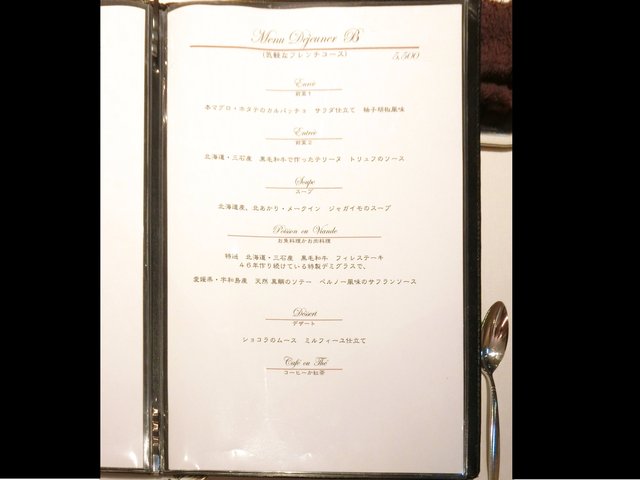 Menu Déjeuner B
(気軽なフレンチコース) 5,500
Entrée
前菜1
本マグロ・ホタテのカルパッチョ サラダ仕立て 柚子胡椒風味
Entrée
前菜2
北海道・三石産 黒毛和牛で作ったテリーヌ トリュフのソース
Soupe
スープ
北海道産、北あかり・メークイン ジャガイモのスープ
Poisson ou Viande
お魚料理かお肉料理
特選 北海道・三石産 黒毛和牛 フィレステーキ
46年作り続けている特製デミグラスで、
愛媛県・宇和島産 天然 真鯛のソテー ペルノー風味のサフランソース
Dessert
デザート
ショコラのムース ミルフィーユ仕立て
Café ou Thé
コーヒーか紅茶